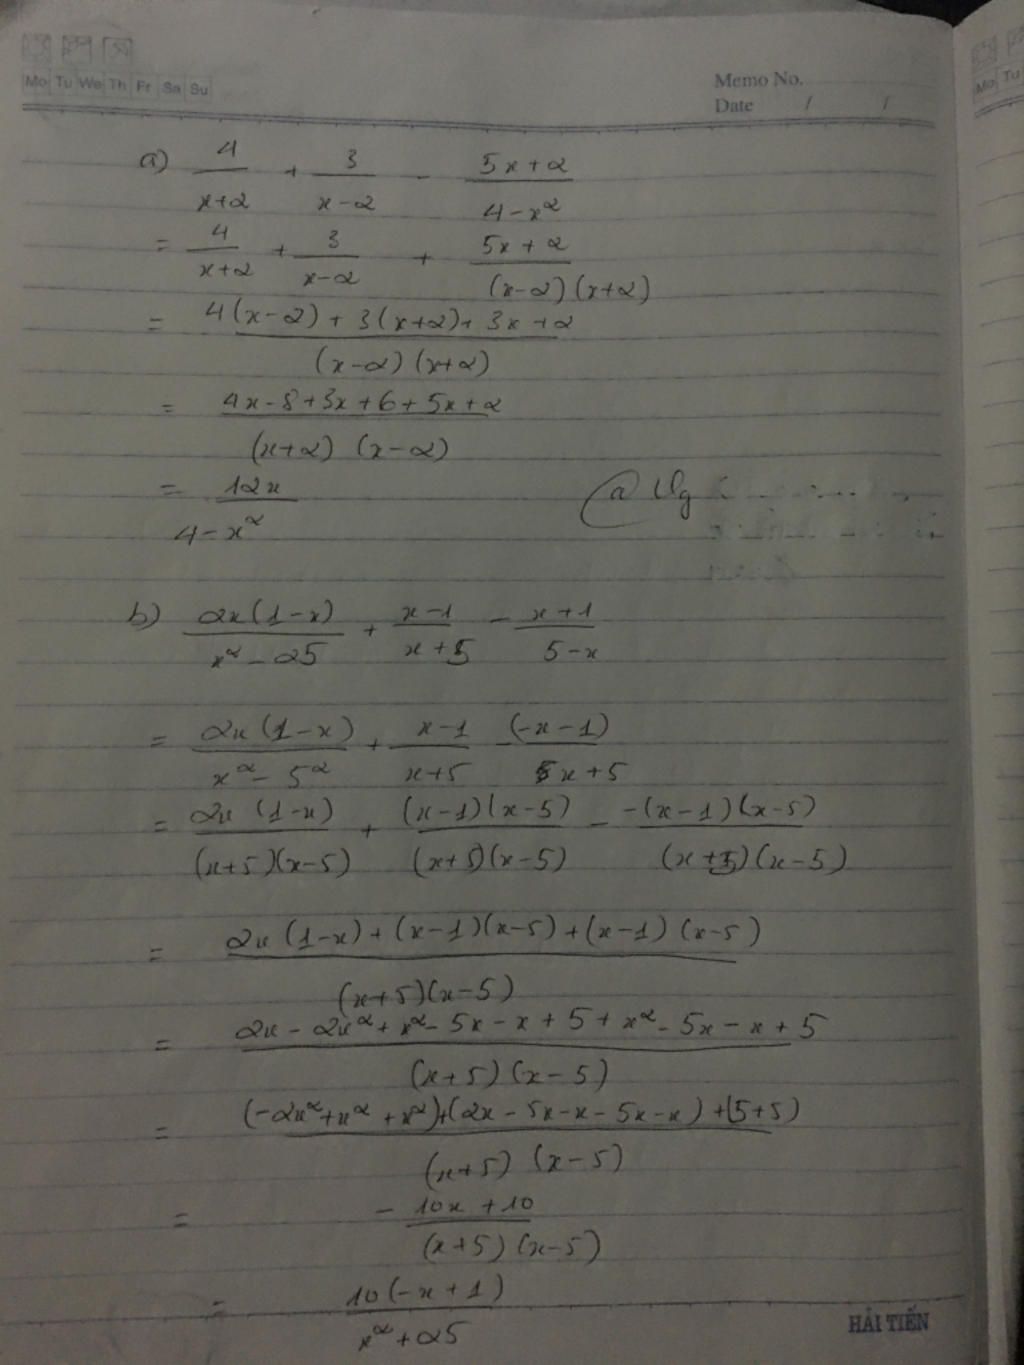 Mo Tu We Th Fr Sa Su
Memo No.
Date / /
Mo Tu
a) 4/(x+2) + 3/(x-2) - (5x+2)/(4-x²)
= 4/(x+2) + 3/(x-2) + (5x+2)/((x-2)(x+2))
= (4(x-2)+3(x+2)+3x+2)/((x-2)(x+2))
= (4x-8+3x+6+5x+2)/((x+2)(x-2))
= 12x/(4-x²)
b) 2x(1-x)/(x²-25) + (x-1)/(x+5) - (x+1)/(5-x)
= 2x(1-x)/(x²-5²) + (x-1)/(x+5) (-x-1)/(x+5)
= 2x(1-x)/((x+5)(x-5)) + (x-1)(x-5)/((x+5)(x-5)) - -(x-1)(x-5)/((x+5)(x-5))
= (2x(1-x)+(x-1)(x-5)+(x-1)(x-5))/((x+5)(x-5))
= (2x-2x²+x²-5x-x+5+x²-5x-x+5)/((x+5)(x-5))
= ((-2x²+x²+x²)+(2x-5x-x-5x-x)+(5+5))/((x+5)(x-5))
= (-10x+10)/((x+5)(x-5))
= 10(-x+1)/(x²+25)
HẢI TIẾN